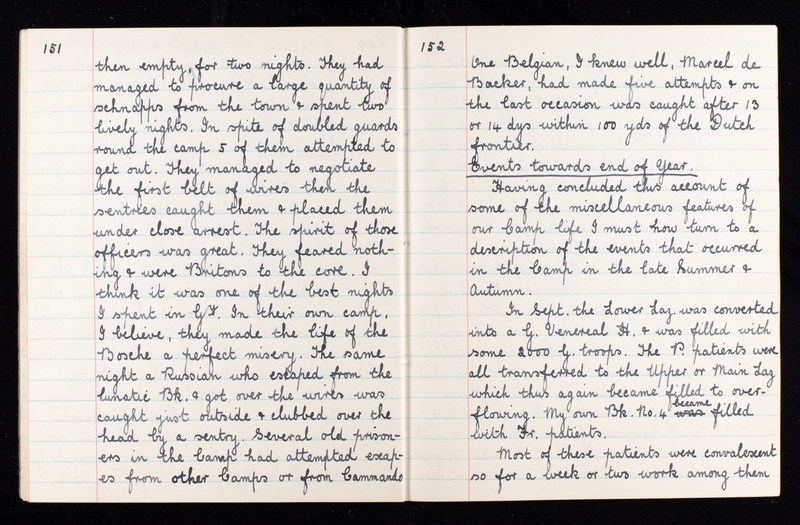 151
then empty, for two nights. They had
managed to procure a large quantity of
schnapps from the town & spent two
lively nights. In spite of doubled guards
round the camp 5 of them attempted to
get out. They managed to negotiate
the first belt of wires then the
sentries caught them & placed them
under close arrest. The spirit of those
officers was great. They feared noth-
ing & were Britons to the core. I
think it was one of the best nights
I spent in Gy. In their own camp,
I believe, they made the life of the
Bosche a perfect misery. The same
night a Russian who escaped from the
lunatic Bk. & got over the wires was
caught just outside & clubbed over the
head by a sentry. Several old prison-
ers in the Camp had attempted escap-
es from other Camps or from Commando
152
One Belgian, I knew well, Marcel de
Backer, had made five attempts & on
the last occasion was caught after 13
or 14 dys within 100 yds of the Dutch
frontier.
Events towards end of Year.
Having concluded this account of
some of the miscellaneous features of
our Camp life I must now turn to a
description of the events that occurred
in the Camp in the late Summer &
Autumn.
In Sept. the Lower Lag. was converted
into a G. Venereal H. & was filled with
some 2000 G. troops. The P. patients were
all transferred to the Upper or Main Lag
which thus again became filled to over-
flowing. My own Bk. No. 4 was became filled
with Fr. patients.
Most of these patients were convalescent
so for a week or two work among them